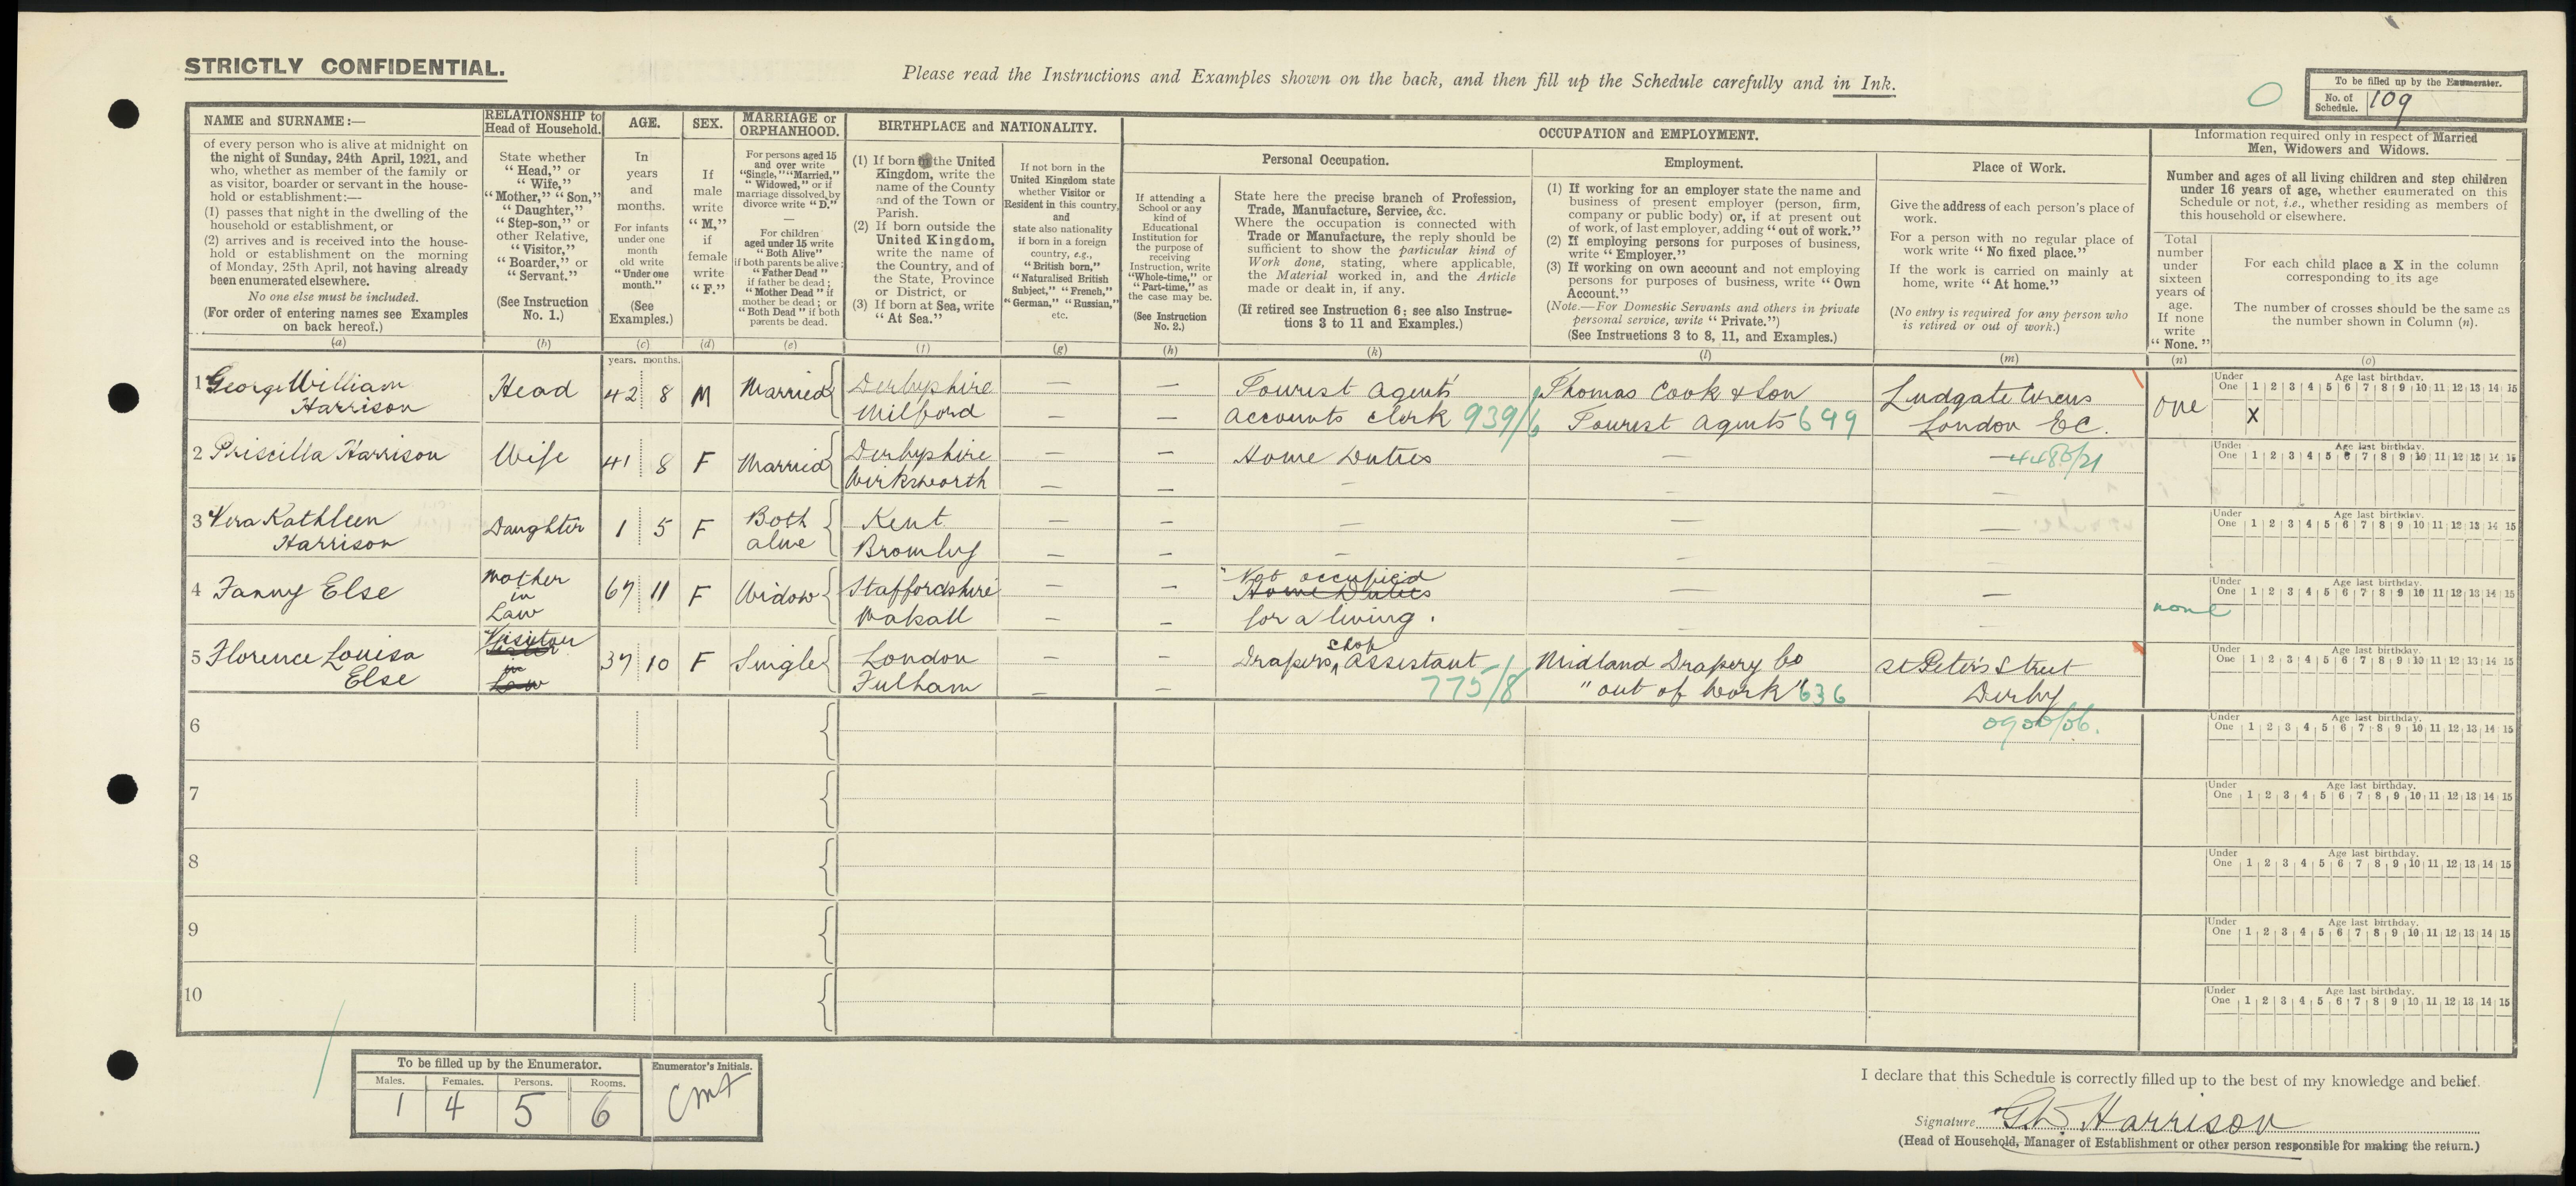 STRICTLY CONFIDENTIAL.
Please read the Instructions and Examples shown on the back, and then fill up the Schedule carefully and in Ink.
To be filled up by the Enumerator.
No. of Schedule. 109
NAME and SURNAME:—
of every person who is alive at midnight on
the night of Sunday, 24th April, 1921, and
who, whether as member of the family or
as visitor, boarder or servant in the house-
hold or establishment:—
(1) passes that night in the dwelling of the
household or establishment, or
(2) arrives and is received into the house-
hold or establishment on the morning
of Monday, 25th April, not having already
been enumerated elsewhere.
No one else must be included.
(For order of entering names see Examples
on back hereof.)
(a)
RELATIONSHIP to
Head of Household.
State whether
"Head," or
"Wife,"
"Mother," "Son,"
"Daughter,"
"Step-son," or
other Relative,
"Visitor,"
"Boarder," or
"Servant."
(See Instruction
No. 1.)
(b)
AGE.
In
years
and
months.
For infants
under one
month
old write
"Under one
month."
(See
Examples.)
(c)
SEX.
If
male
write
"M,"
if
female
write
"F."
(d)
MARRIAGE or
ORPHANHOOD.
For persons aged 15
and over write
"Single," "Married,"
"Widowed," or if
marriage dissolved by
divorce write "D."
—
For children
aged under 15 write
"Both Alive"
if both parents be alive;
"Father Dead"
if father be dead;
"Mother Dead" if
mother be dead; or
"Both Dead" if both
parents be dead.
(e)
BIRTHPLACE and NATIONALITY.
(1) If born in the United
Kingdom, write the
name of the County
and of the Town or
Parish.
(2) If born outside the
United Kingdom,
write the name of
the Country, and of
the State, Province
or District, or
(3) If born at Sea, write
"At Sea."
(f)
If not born in the
United Kingdom state
whether Visitor or
Resident in this country,
and
state also nationality
if born in a foreign
country, e.g.,
"British born,"
"Naturalised British
Subject," "French,"
"German," "Russian,"
etc.
(g)
OCCUPATION and EMPLOYMENT.
Personal Occupation.
If attending a
School or any
kind of
Educational
Institution for
the purpose of
receiving
Instruction, write
"Whole-time," or
"Part-time," as
the case may be.
(See Instruction
No. 2.)
(h)
State here the precise branch of Profession,
Trade, Manufacture, Service, &c.
Where the occupation is connected with
Trade or Manufacture, the reply should be
sufficient to show the particular kind of
Work done, stating, where applicable,
the Material worked in, and the Article
made or dealt in, if any.
(If retired see Instruction 6; see also Instruc-
tions 3 to 11 and Examples.)
(k)
Employment.
(1) If working for an employer state the name and
business of present employer (person, firm,
company or public body) or, if at present out
of work, of last employer, adding "out of work."
(2) If employing persons for purposes of business,
write "Employer."
(3) If working on own account and not employing
persons for purposes of business, write "Own
Account."
(Note.—For Domestic Servants and others in private
personal service, write "Private.")
(See Instructions 3 to 8, 11, and Examples.)
(l)
Place of Work.
Give the address of each person's place of
work.
For a person with no regular place of
work write "No fixed place."
If the work is carried on mainly at
home, write "At home."
(No entry is required for any person who
is retired or out of work.)
(m)
Information required only in respect of Married
Men, Widowers and Widows.
Number and ages of all living children and step children
under 16 years of age, whether enumerated on this
Schedule or not, i.e., whether residing as members of
this household or elsewhere.
Total
number
under
sixteen
years of
age.
If none
write
"None."
(n)
For each child place a X in the column
corresponding to its age
The number of crosses should be the same as
the number shown in Column (n).
(o)
years. months.
1 George William Harrison Head 42 8 M Married Derbyshire Milford — — Tourist Agents' accounts clerk 939/6 Thomas Cook & Son Tourist Agents 699 Ludgate Circus London EC. one X
Under One Age last birthday. 1 2 3 4 5 6 7 8 9 10 11 12 13 14 15
2 Priscilla Harrison Wife 41 8 F Married Derbyshire Wirksworth — — Home Duties — —
Under One Age last birthday. 1 2 3 4 5 6 7 8 9 10 11 12 13 14 15
3 Vera Kathleen Harrison Daughter 1 5 F Both alive Kent Bromley — — — — —
Under One Age last birthday. 1 2 3 4 5 6 7 8 9 10 11 12 13 14 15
4 Fanny Else Mother in Law 67 11 F Widow Staffordshire Walsall — — Not occupied Home Duties for a living. — — none
Under One Age last birthday. 1 2 3 4 5 6 7 8 9 10 11 12 13 14 15
5 Florence Louisa Else Visitor Sister in Law 37 10 F Single London Fulham — — Drapers shop Assistant 775/8 Midland Drapery Co "out of work" 636 St Peter's Street Derby
Under One Age last birthday. 1 2 3 4 5 6 7 8 9 10 11 12 13 14 15
6
Under One Age last birthday. 1 2 3 4 5 6 7 8 9 10 11 12 13 14 15
7
Under One Age last birthday. 1 2 3 4 5 6 7 8 9 10 11 12 13 14 15
8
Under One Age last birthday. 1 2 3 4 5 6 7 8 9 10 11 12 13 14 15
9
Under One Age last birthday. 1 2 3 4 5 6 7 8 9 10 11 12 13 14 15
10
Under One Age last birthday. 1 2 3 4 5 6 7 8 9 10 11 12 13 14 15
To be filled up by the Enumerator.
Males. Females. Persons. Rooms.
1 4 5 6
Enumerator's Initials.
I declare that this Schedule is correctly filled up to the best of my knowledge and belief.
Signature G W Harrison
(Head of Household, Manager of Establishment or other person responsible for making the return.)